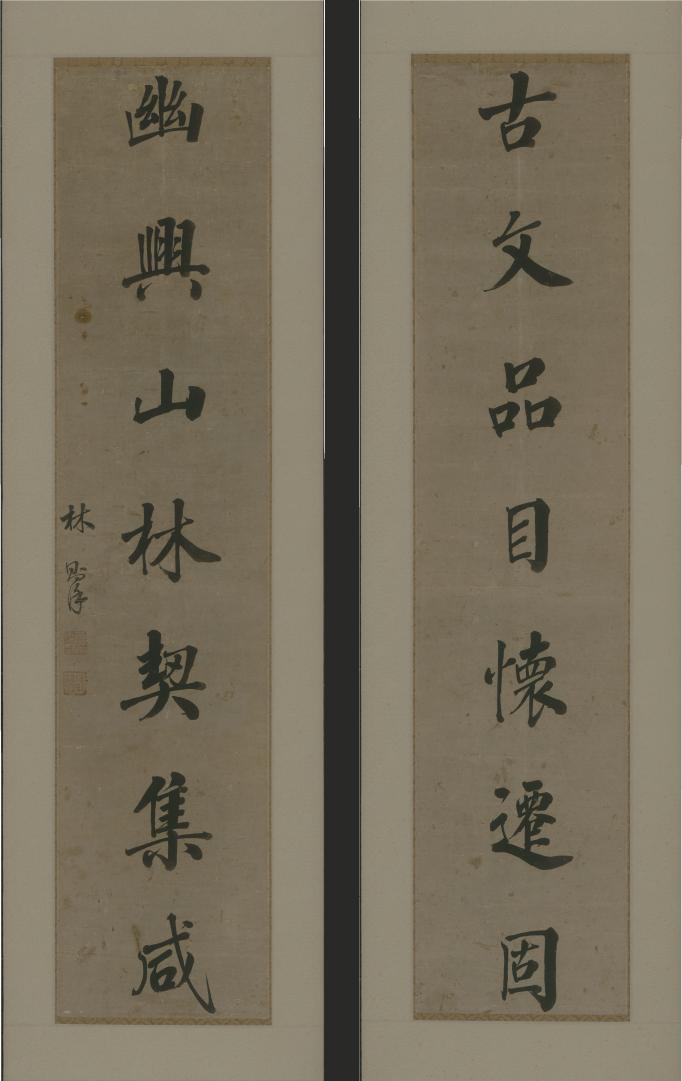 古文品目懷遷固
幽興山林契集咸
林則徐